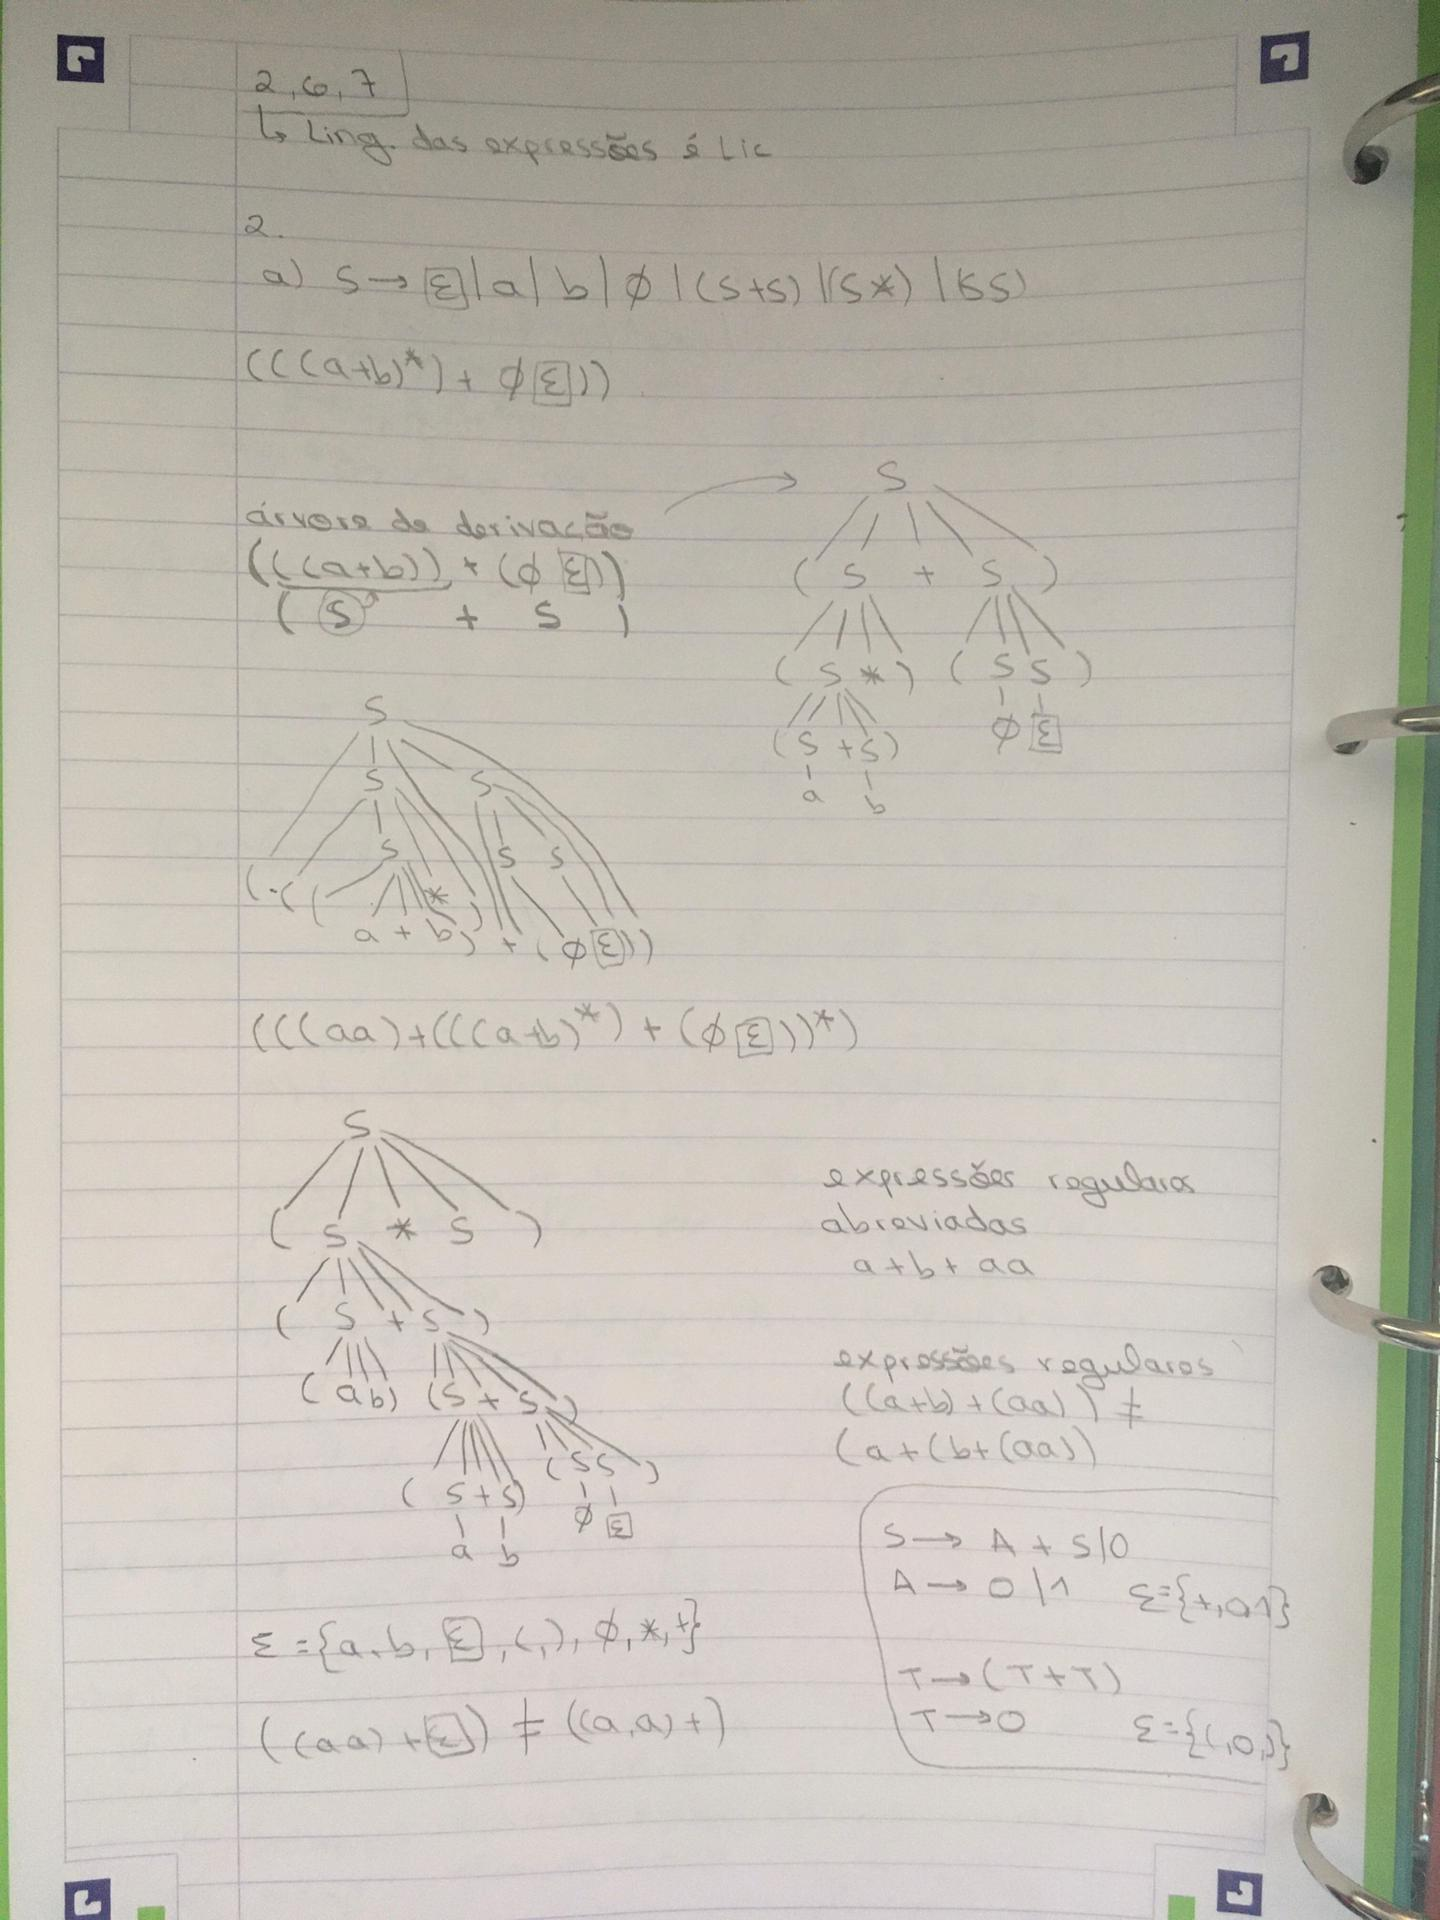 2,6,7
↳ Ling. das expressões é LIC
2.
a) S → [ε] | a | b | ∅ | (S+S) | (S*) | (SS)
(((a+b)*) + ∅[ε]))
árvore de derivação
(((a+b)) + (∅[ε]))
( S + S )
S
( S + S )
( S * ) ( S S )
∅ [ε]
( S + S )
a b
S
S S
S S S
( ( ( *
a + b ) ) + ( ∅ [ε] ) )
(((aa)+(((a+b)*) + (∅[ε]))*)
S
( S * S )
( S + S )
( a b ) ( S + S )
( S S )
( S + S ) ∅ [ε]
a b
expressões regulares
abreviadas
a+b+aa
expressões regulares
((a+b)+(aa)) ≠
(a+(b+(aa))
S → A + S|0
A → 0|1 Σ={+,0,1}
T → (T+T)
T → 0 Σ={(,0,)}
Σ={a,b,[ε],(,),∅,*,+}
((aa)+[ε]) ≠ ((a,a)+)